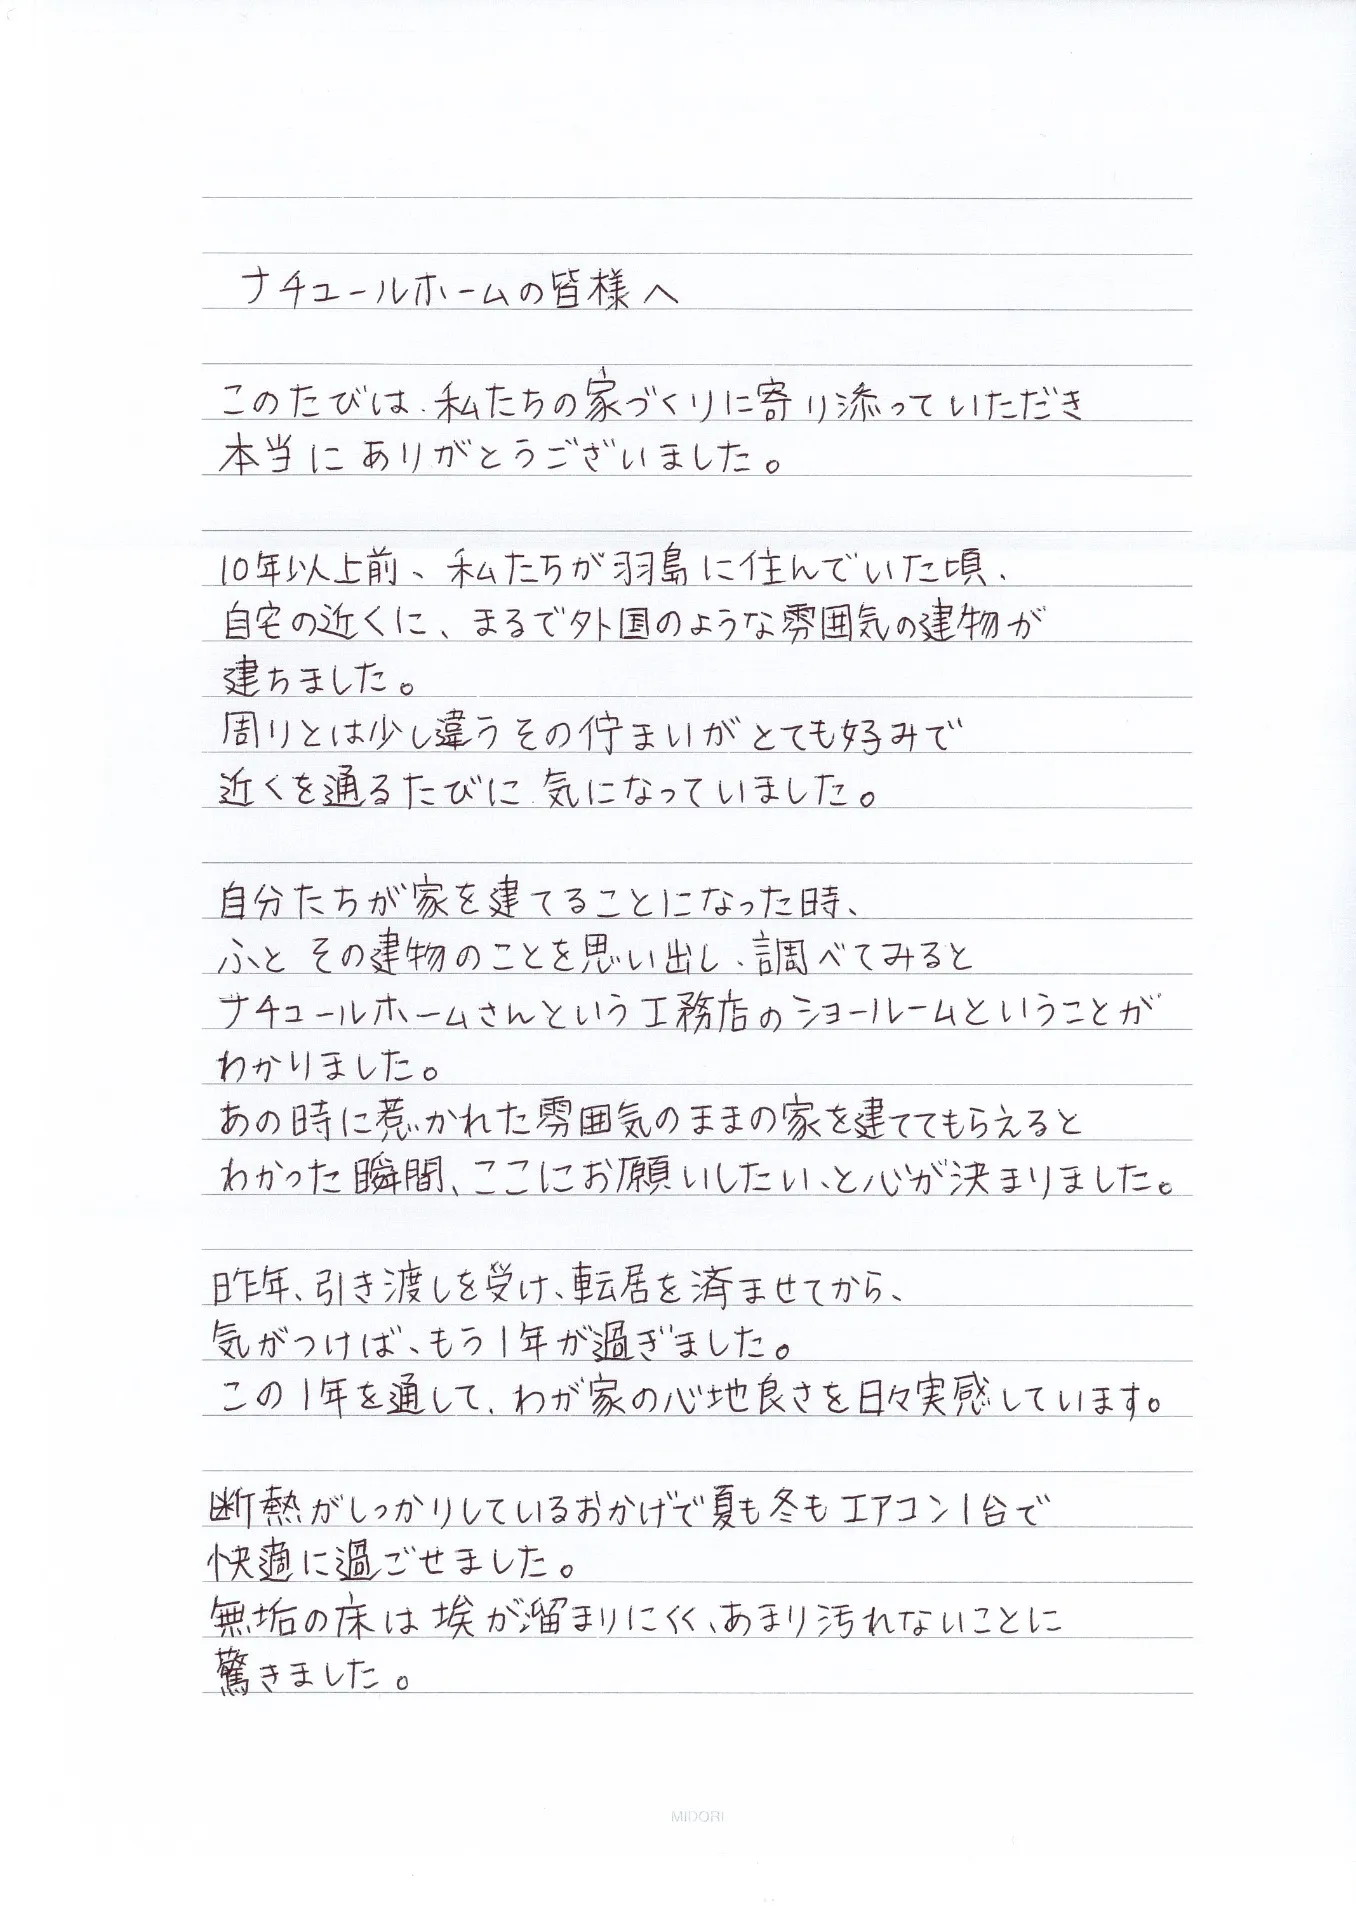 ナチュールホームの皆様へ
このたびは、私たちの家づくりに寄り添っていただき
本当にありがとうございました。
10年以上前、私たちが羽島に住んでいた頃、
自宅の近くに、まるで外国のような雰囲気の建物が
建ちました。
周りとは少し違うその佇まいがとても好みで
近くを通るたびに気になっていました。
自分たちが家を建てることになった時、
ふと その建物のことを思い出し、調べてみると
ナチュールホームさんという工務店のショールームということが
わかりました。
あの時に惹かれた雰囲気のままの家を建ててもらえると
わかった瞬間、ここにお願いしたい、と心が決まりました。
昨年、引き渡しを受け、転居を済ませてから、
気がつけば、もう1年が過ぎました。
この1年を通して、わが家の心地良さを日々実感しています。
断熱がしっかりしているおかげで夏も冬もエアコン1台で
快適に過ごせました。
無垢の床は埃が溜まりにくく、あまり汚れないことに
驚きました。
MIDORI